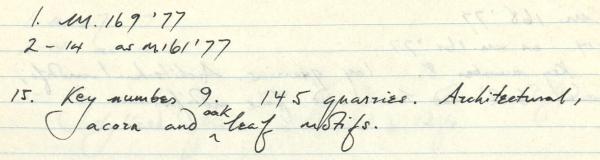 1. M. 169 '77
2-14 as M161 '77
15. Key number 9. 145 quarries. Architectural,
acorn and oak leaf motifs.